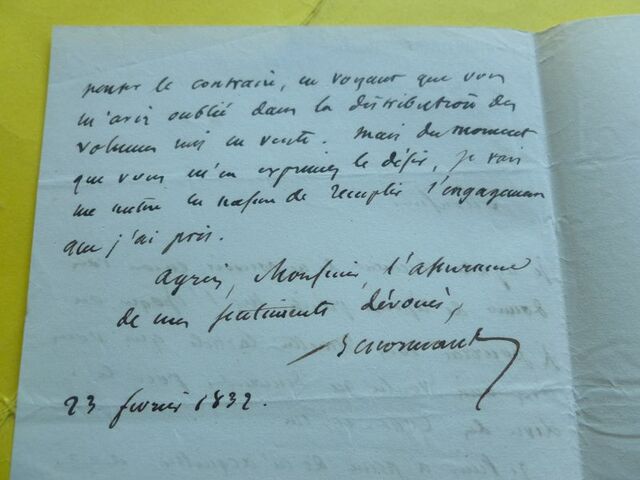 penser le contraire, en voyant que vous
m'aviez oublié dans la distribution des
volumes mis en vente. Mais du moment
que vous m'en exprimez le désir, je vais
me mettre en mesure de remplir l'engagement
que j'ai pris.
Agréez, Monsieur, l'assurance
de mes sentiments dévoués,
23 février 1832.